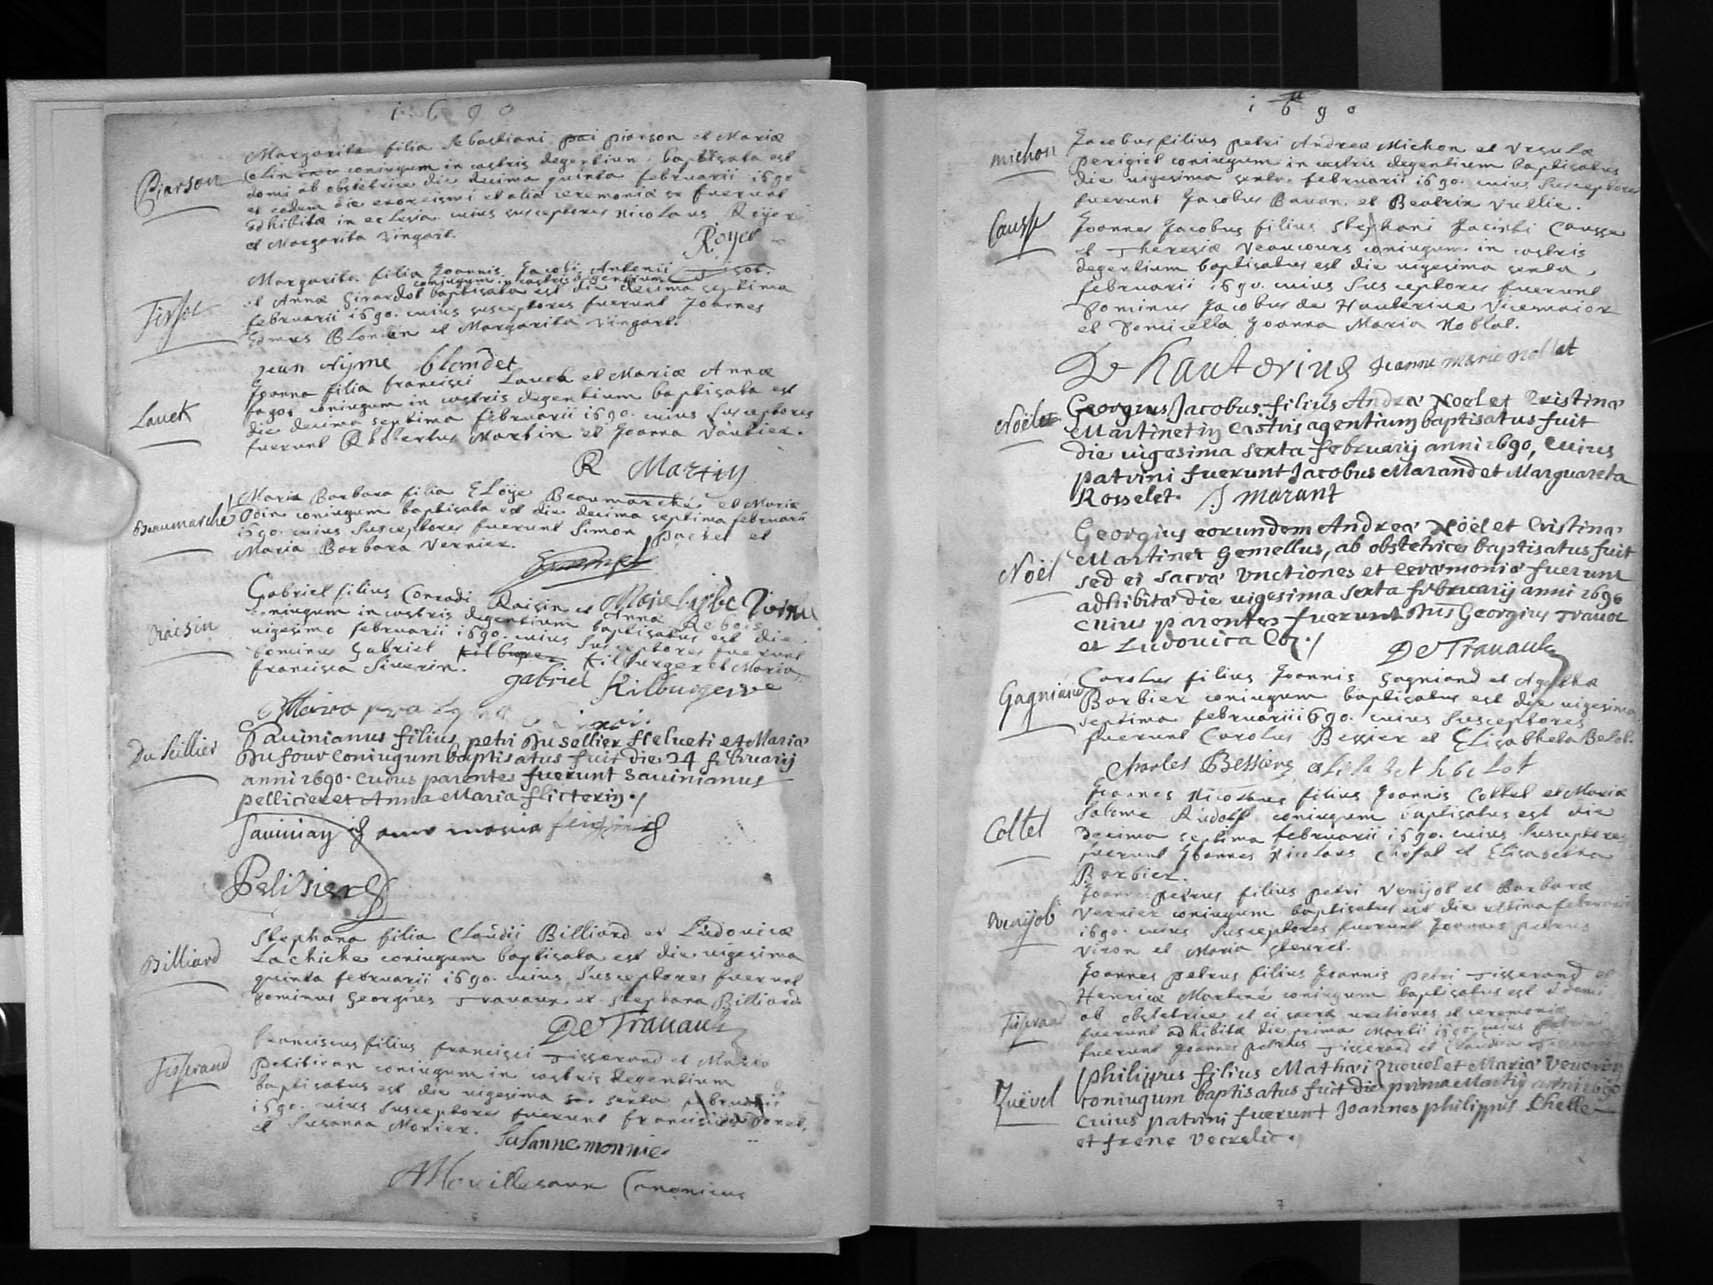 1690
Margarita filia Sebastiani pai piarson et Mariæ
Piarson
coniugum in castris degentium baptisata est
domi ab obstetrice die decima quinta februarii 1690
et eodem die exorcismi et alia ceremoniæ fuerunt
adhibitæ in ecclesia cuius susceptores Nicolaus Royer
et Margarita Vingart.
Royer
Margarita filia Joannis Jacobi Antonii Tissot.
coniugum in castris degentium
Tissot
et Annæ Girardot baptisata est die decima septima
februarii 1690. cuius susceptores fuerunt Joannes
Edmus Blondin et Margarita Vingart.
jean Ayme blondet
Joanna filia francisci Lauck et Mariæ Annæ
Lauck
fagot coniugum in castris degentium baptisata est
die decima septima februarii 1690. cuius susceptores
fuerunt Robertus Martin et Joanna Vautier.
R Martin
Maria Barbara filia Eloÿe Beaumarché et Mariæ
Beaumarche
Odin coniugum baptisata est die decima septima februarii
1690. cuius susceptores fuerunt Simon Pachet et
Maria Barbara Vernier.
Gabriel filius Conradi Raisin et Anna Rebois
Raisin
coniugum in castris degentium baptisatus est die
vigesimo februarii 1690. cuius susceptores fuerunt
Dominus Gabriel Kilburger et Maria
francisca Siverin.
gabriel Kilburger
Du Sellier
Savinianus filius petri Du sellier Helueti et Mariæ
Dufour Coniugum baptisatus fuit die 24 februarij
anni 1690. cuius parentes fuerunt Savinianus
pellicier et Anna Maria flicterin.
Saviniay
anna maria
Pelisier
Stephana filia Claudii Billiard et Ludovicæ
Billiard
La chiche coniugum baptisata est die vigesima
quinta februarii 1690. cuius susceptores fuerunt
Dominus Georgius Travaux et Stephana Billiard.
De Travaulx
franciscus filius francisci Tisserand et Mariæ
Tisserand
Petitican coniugum in castris degentium
baptisatus est die vigesima sexta februarii
1690. cuius susceptores fuerunt franciscus Borel,
et Susanna Monier.
Susanne monnie
Canonicus
1690
michon
Jacobus filius petri Andreæ Michon et Ursulæ
perigiel coniugum in castris degentium baptisatus
die vigesima sexta februarii 1690. cuius susceptores
fuerunt Jacobus Bauan et Beatrix Vullie.
Causse
Joannes Jacobus filius Stephani Jacinti Causse
et Theresiæ Veaucours coniugum in castris
degentium baptisatus est die vigesima sexta
februarii 1690. cuius susceptores fuerunt
Dominus Jacobus de Hauterive Vicemaior
et Domicella Joanna Maria Noblat.
De hauterive Jeanne marie noblat
Noël
Georgius Jacobus filius Andreæ Noel et Cristinæ
Martinet in castris agentium baptisatus fuit
die vigesima sexta februarij anni 1690, cuius
patrini fuerunt Jacobus Marand et Marguareta
Rosselet. J marant
Noël
Georgius eorundem Andreæ Noël et Cristinæ
Martinet gemellus, ab obstetrice baptisatus fuit
sed ei sacræ vnctiones et ceræmoniæ fuerunt
adhibitæ die vigesima sexta februarij anni 1690
cuius parentes fuerunt Dns Georgius Travot
et Ludovica Coz.
De Travaulx
Gagniand
Carolus filius Joannis Gagniand et Agathæ
Barbier coniugum baptisatus est die vigesima
septima februarii 1690. cuius susceptores
fuerunt Carolus Bessier et Elisabheta Belot.
Charles Bessiere
Cottet
Joannes Nicolaus filius Joannis Cottet et Mariæ
Salome Rudolf coniugum baptisatus est die
decima septima februarii 1690. cuius susceptores
fuerunt Joannes Nicolaus Chofat et Elisabetha
Barbier.
Joannes petrus filius petri Verijot et Barbaræ
Vernier coniugum baptisatus est die ultima februarii
1690. cuius susceptores fuerunt Joannes petrus
Viron et Maria
Tisserand
Joannes petrus filius Joannis petri Tisserand et
Henricæ Martené coniugum baptisatus est domi
ab obstetrice et ei sacræ unctiones et ceremoniæ
fuerunt adhibitæ die prima Martii 1690. cuius patrini
fuerunt Joannes petrus Tisserand et Claudia
Zuevel
philippus filius Mathæi Zuevel et Mariæ
coniugum baptisatus fuit die prima Martij anni 1690
cuius patrini fuerunt Joannes philippus Chelle
et frene